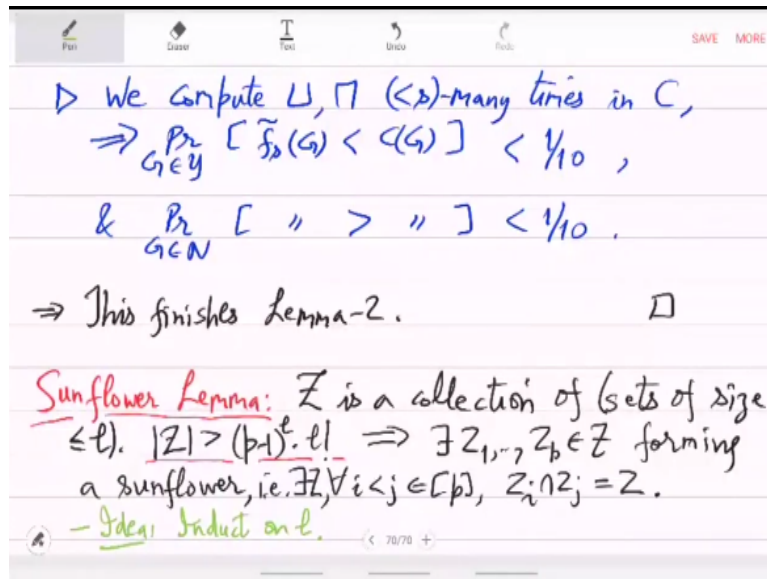 Pen Eraser Text Undo Redo SAVE MORE
▷ We compute ⊔, ⊓ (<s)-many times in C,
⇒ Pr_{G∈Y} [ f̃_s(G) < C(G) ] < 1/10 ,
& Pr_{G∈N} [ " > " ] < 1/10 .
⇒ This finishes Lemma-2. □
Sunflower Lemma: Z is a collection of (sets of size
≤ℓ). |Z| > (p-1)^ℓ · ℓ! ⇒ ∃ Z_1,..,Z_p ∈ Z forming
a sunflower, i.e. ∃Z, ∀i<j ∈ [p], Z_i ∩ Z_j = Z.
- Idea: Induct on ℓ.
< 70/70 +